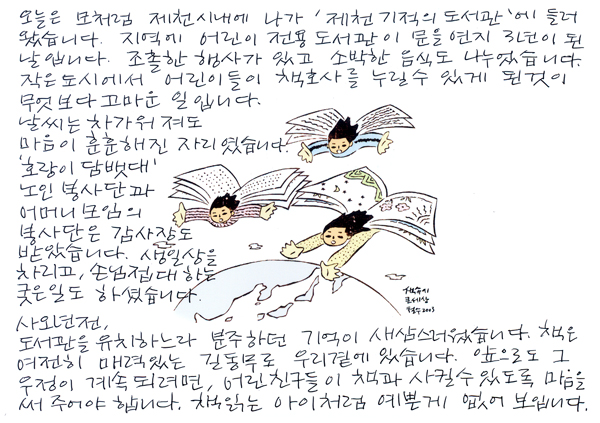 오늘은 모처럼 제천시내에 나가 '제천기적의도서관'에 들러
왔습니다. 지역에 어린이 전용 도서관이 문을 연지 3년이 된
날입니다. 조촐한 행사가 있고 소박한 음식도 나누었습니다.
작은도시에서 어린이들이 책호사를 누릴 수 있게 된것이
무엇보다 고마운 일입니다.
날씨는 차가워져도
마음이 훈훈해진 자리였습니다.
'호랑이 담뱃대'
노인 봉사단과
어머니모임의
봉사단은 감사장도
받았습니다. 생일상을
차리고, 손님접대 하는
궂은일도 하셨습니다.
2003
사오년전,
도서관을 유치하느라 분주하던 기억이 새삼스러웠습니다. 책은
여전히 매력있는 길동무로 우리곁에 있습니다. 앞으로도 그
우정이 계속되려면, 어린친구들이 책과 사귈수 있도록 마음을
써 주어야 합니다. 책읽는 아이처럼 예쁜게 없어 보입니다.